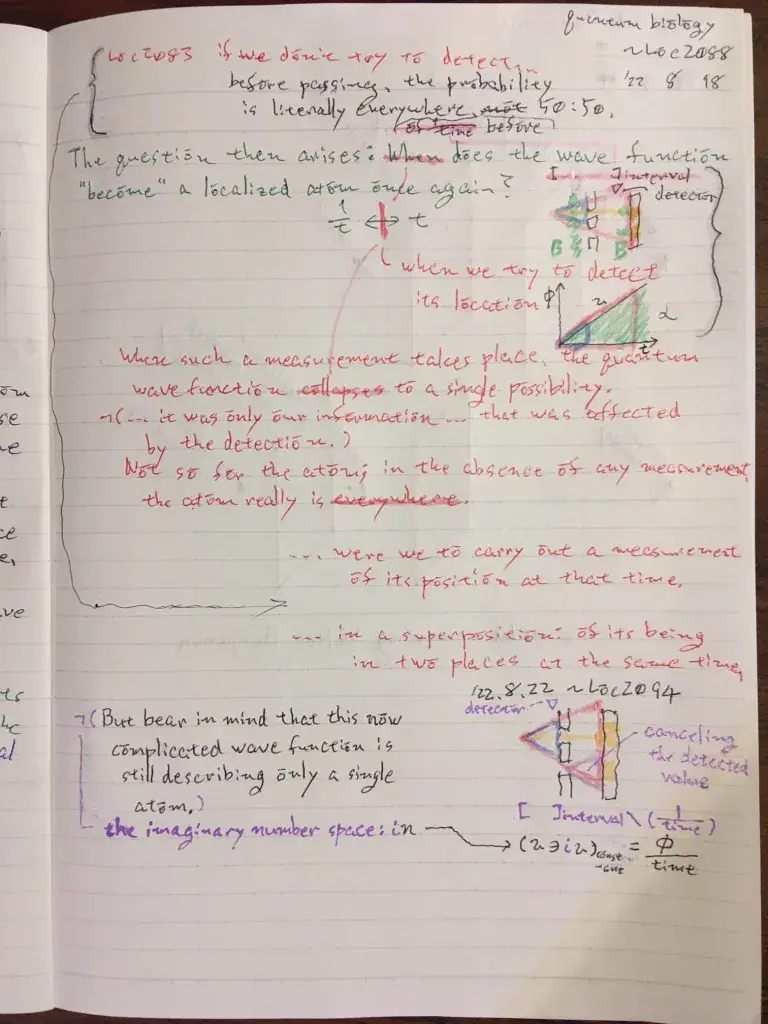 quantum biology
~Loc2088
'22 8 18
Loc2083 if we don't try to detect,
before passing, the probability
is literally everywhere not 50:50.
of time before
The question then arises: When does the wave function
"become" a localized atom once again?
[ ]interval
detector
1/t ↔ t
B B
when we try to detect
its location
φ
t
α
When such a measurement takes place, the quantum
wave function collapses to a single possibility.
¬(... it was only our information ... that was affected
by the detection.)
Not so for the atom; in the absence of any measurement
the atom really is everywhere.
... were we to carry out a measurement
of its position at that time,
... in a superposition: of its being
in two places at the same time,
'22.8.22 ~Loc2094
detector
¬(But bear in mind that this now
complicated wave function is
still describing only a single
atom.)
canceling
the detected
value
[ ]interval \ (1/time)
the imaginary number space: in
→ (u∋iu)const-ant = φ/time
om
se
ne
t
ce
e,
ve
ts
he
al